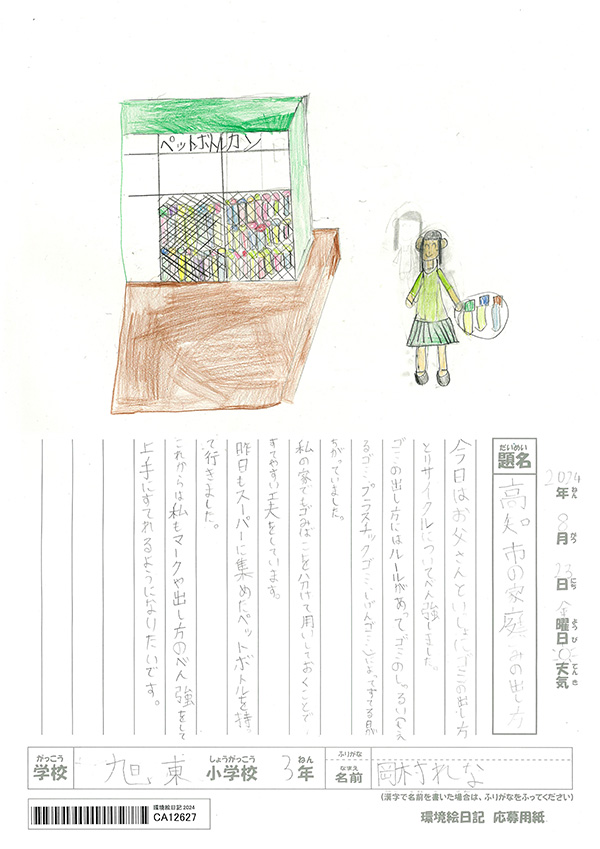 ペットボトル カン
2024年8月23日金曜日 天気
ねん がつ にち ようび てんき
だいめい
題名
高知市の家庭ごみの出し方
今日はお父さんといっしょにゴミの出し方
とリサイクルについてべん強しました。
ゴミの出し方にはルールがあってゴミのしゅるい(もえ
るゴミ・プラスチックゴミ・しげんゴミ)によってすてる日
ちがっていました。
私の家でもゴミばこを分けて用いしておくことで
すてやすい工夫をしています。
昨日もスーパーに集めたペットボトルを持っ
て行きました。
これからは私もマークや出し方のべん強をして
上手にすてれるようになりたいです。
がっこう
学校
旭東
しょうがっこう
小学校
3年
ねん
ふりがな
なまえ
名前
岡村れな
(漢字で名前を書いた場合は、ふりがなをふってください)
環境絵日記 2024
CA12627
環境絵日記 応募用紙